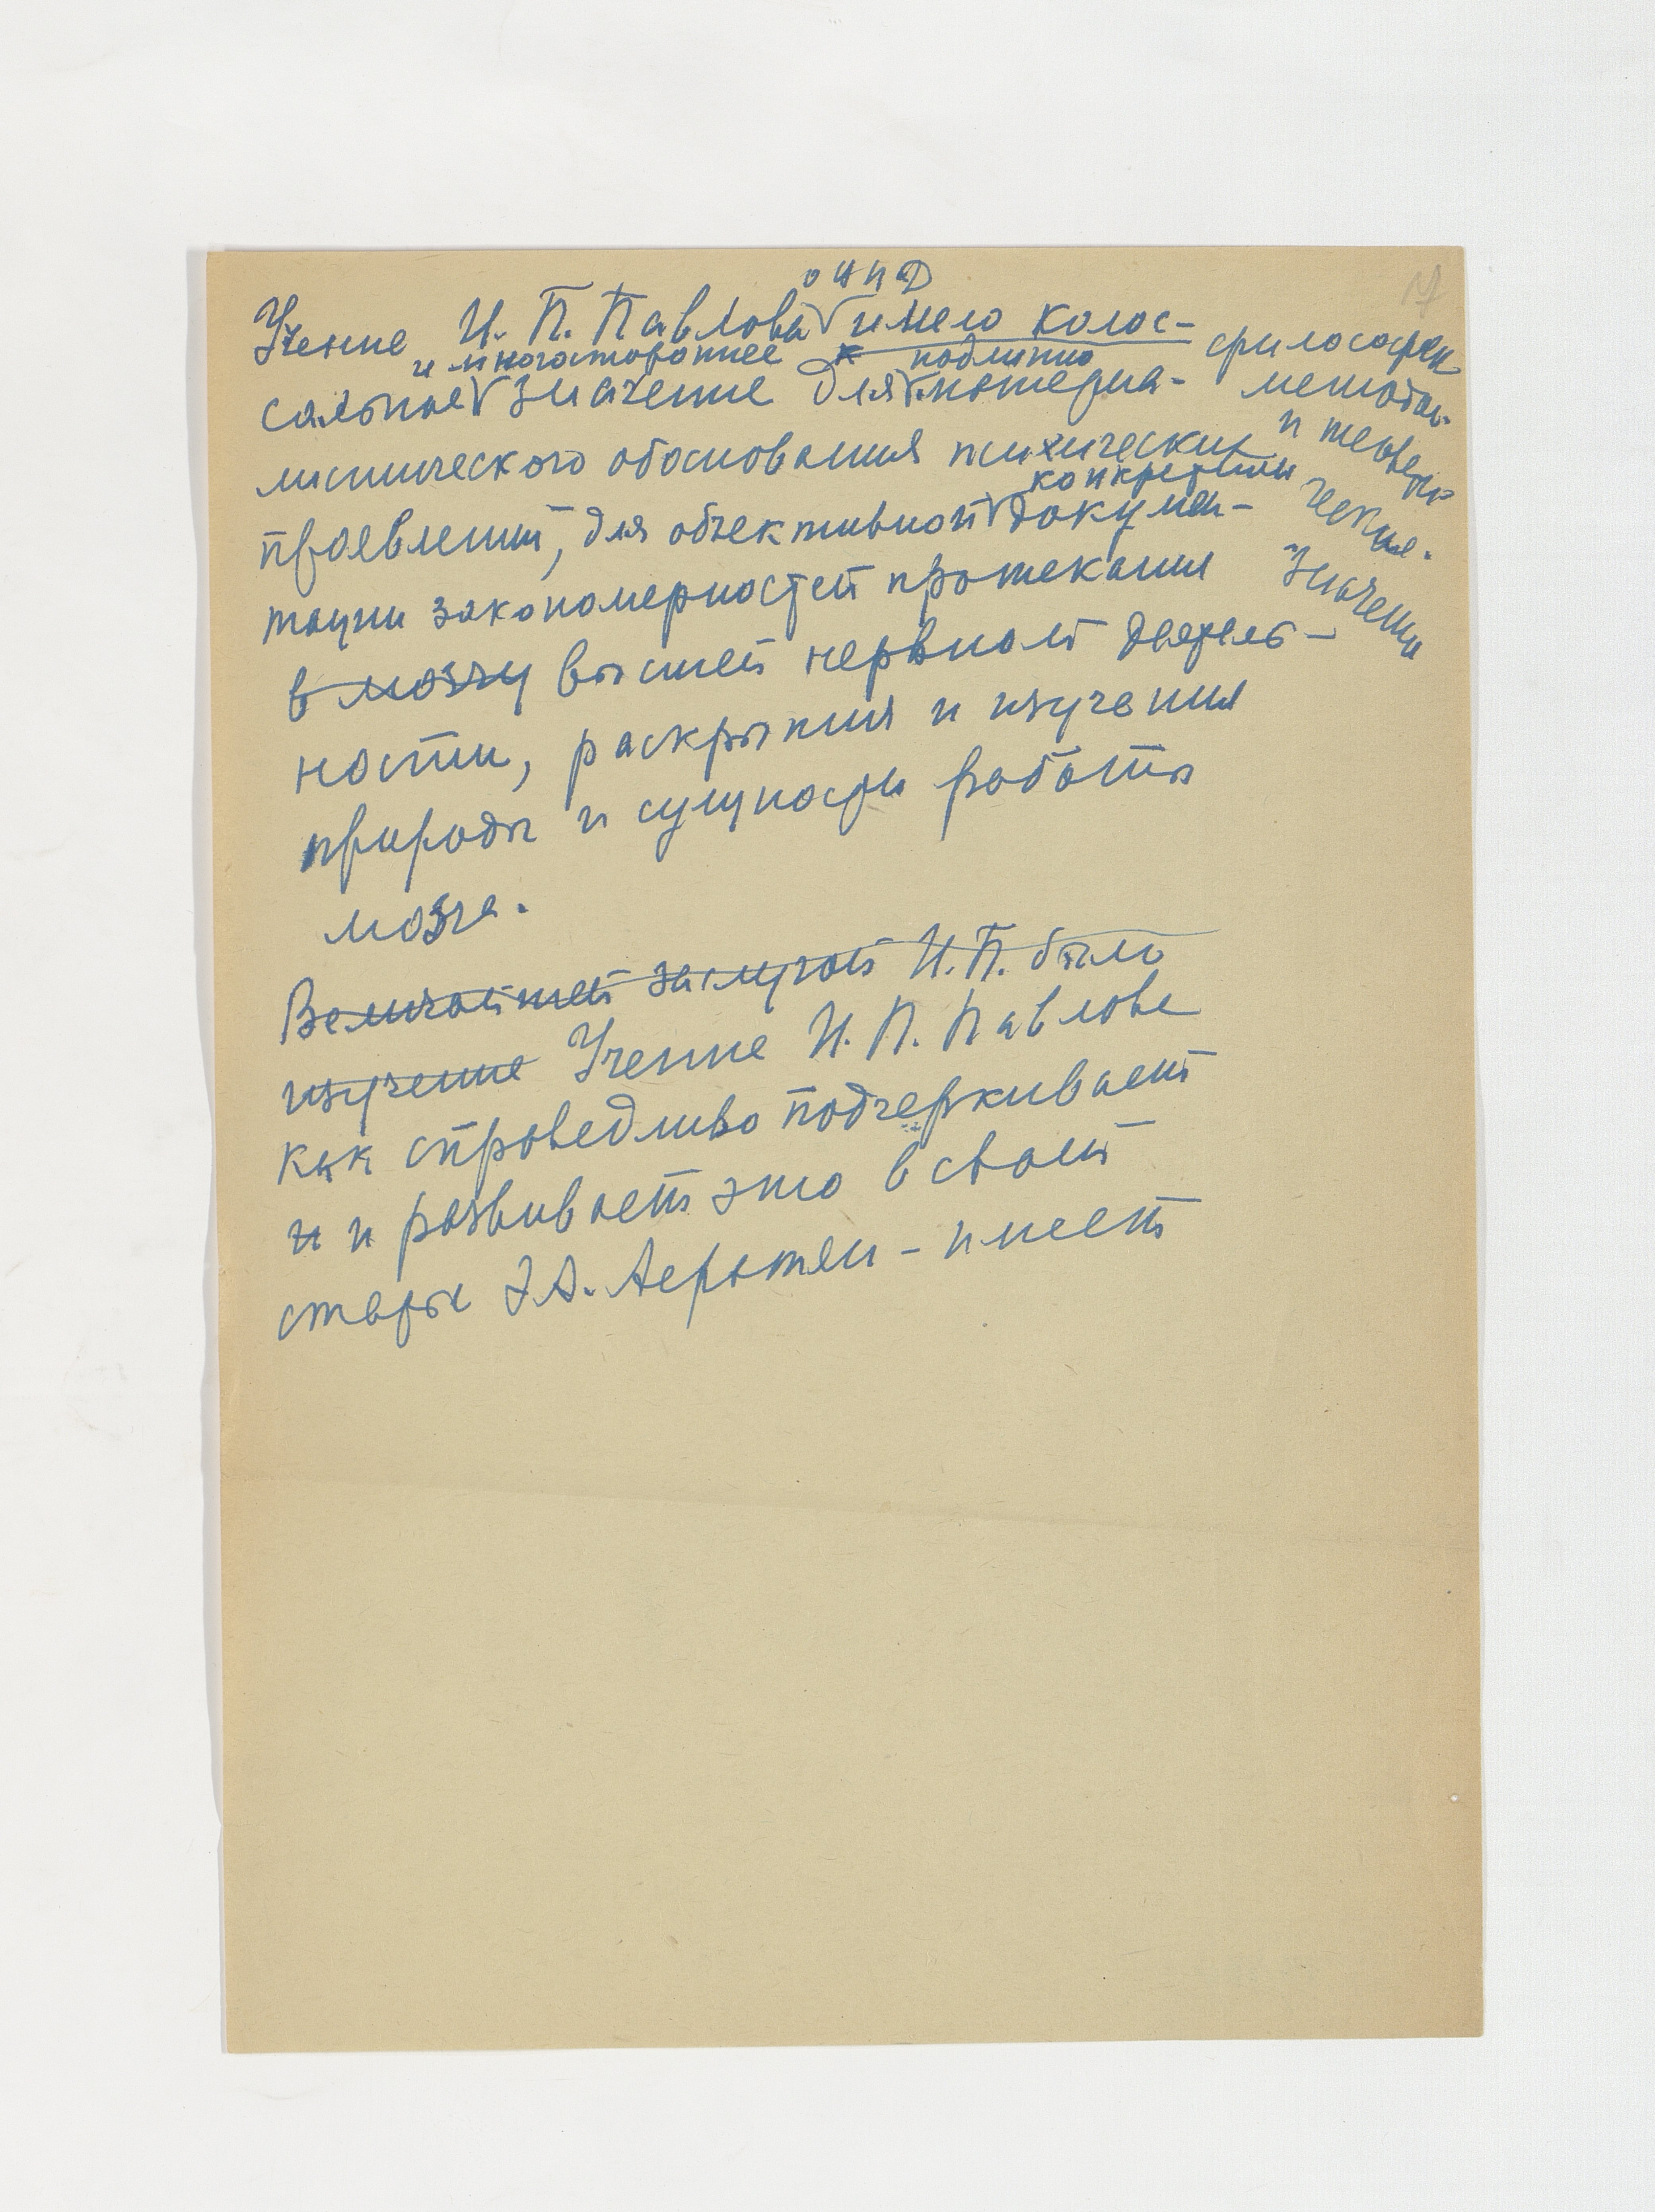 о ВНД
Учение И. П. Павлова имело колос-
и многостороннее подлинно
сальное значение для матерриа-
листического обоснования психических
конкретной
проявлений, для объективной докумен-
тации закономерностей протекания
в мозгу высшей нервной деятель-
ности, раскрытия и изучения
природы и сущности работы
мозга.
философск
методол.
и теорети-
ческое.
значение
Величайшей заслугой И.П. было
изучение Учение И. П. Павлова
как справедливо подчеркивает
и и развивает это в своей
статье Э.А. Асратян - имеет